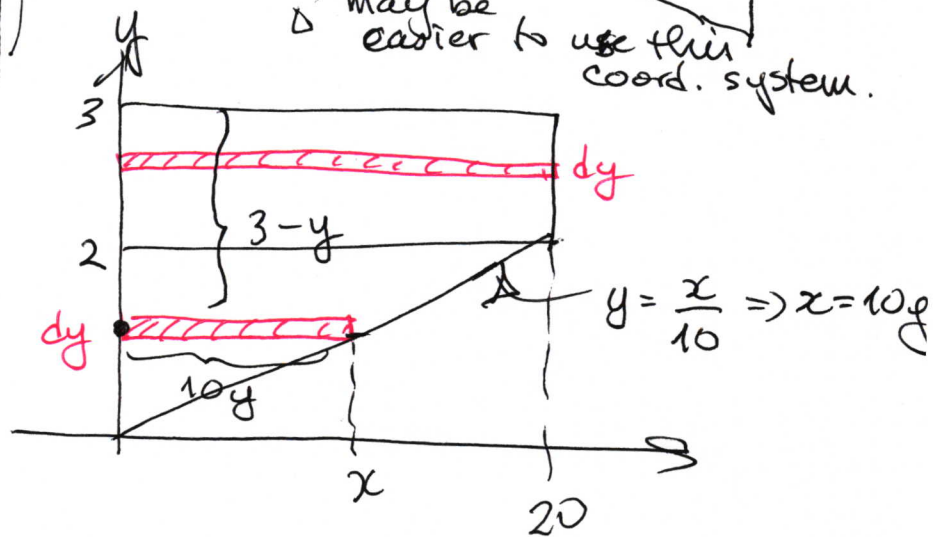 may be
easier to use this
coord. system.
y
3
dy
3-y
2
y = x/10 => x = 10y
dy
10y
x
20